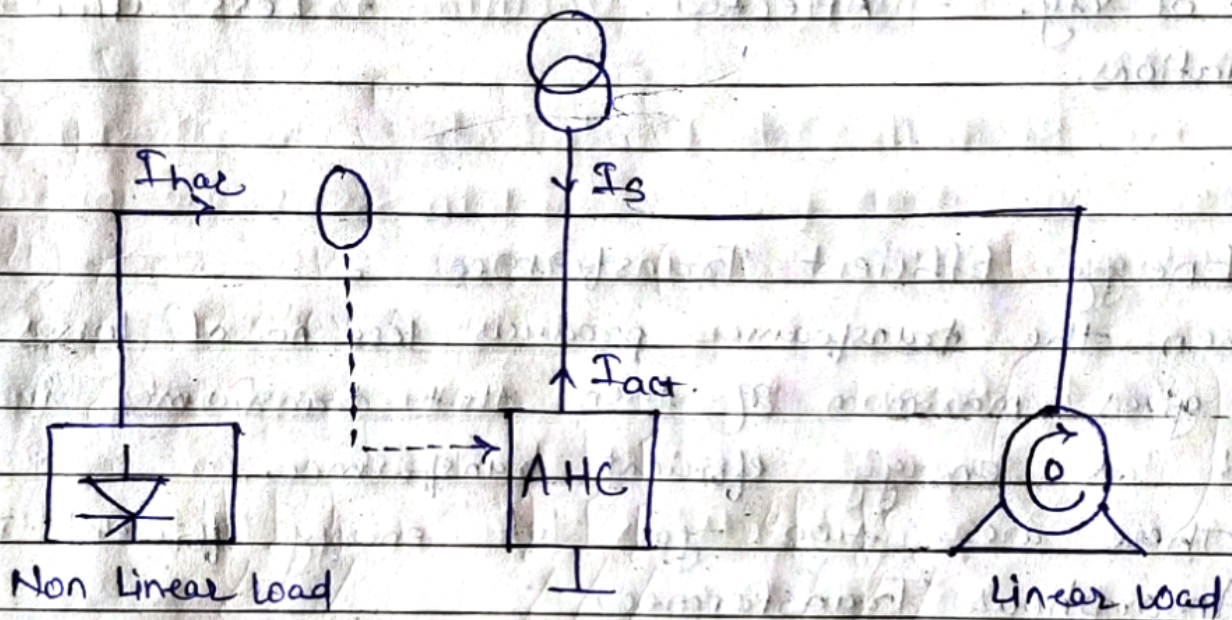 I_har
I_S
I_act
AHC
Non Linear Load
Linear Load